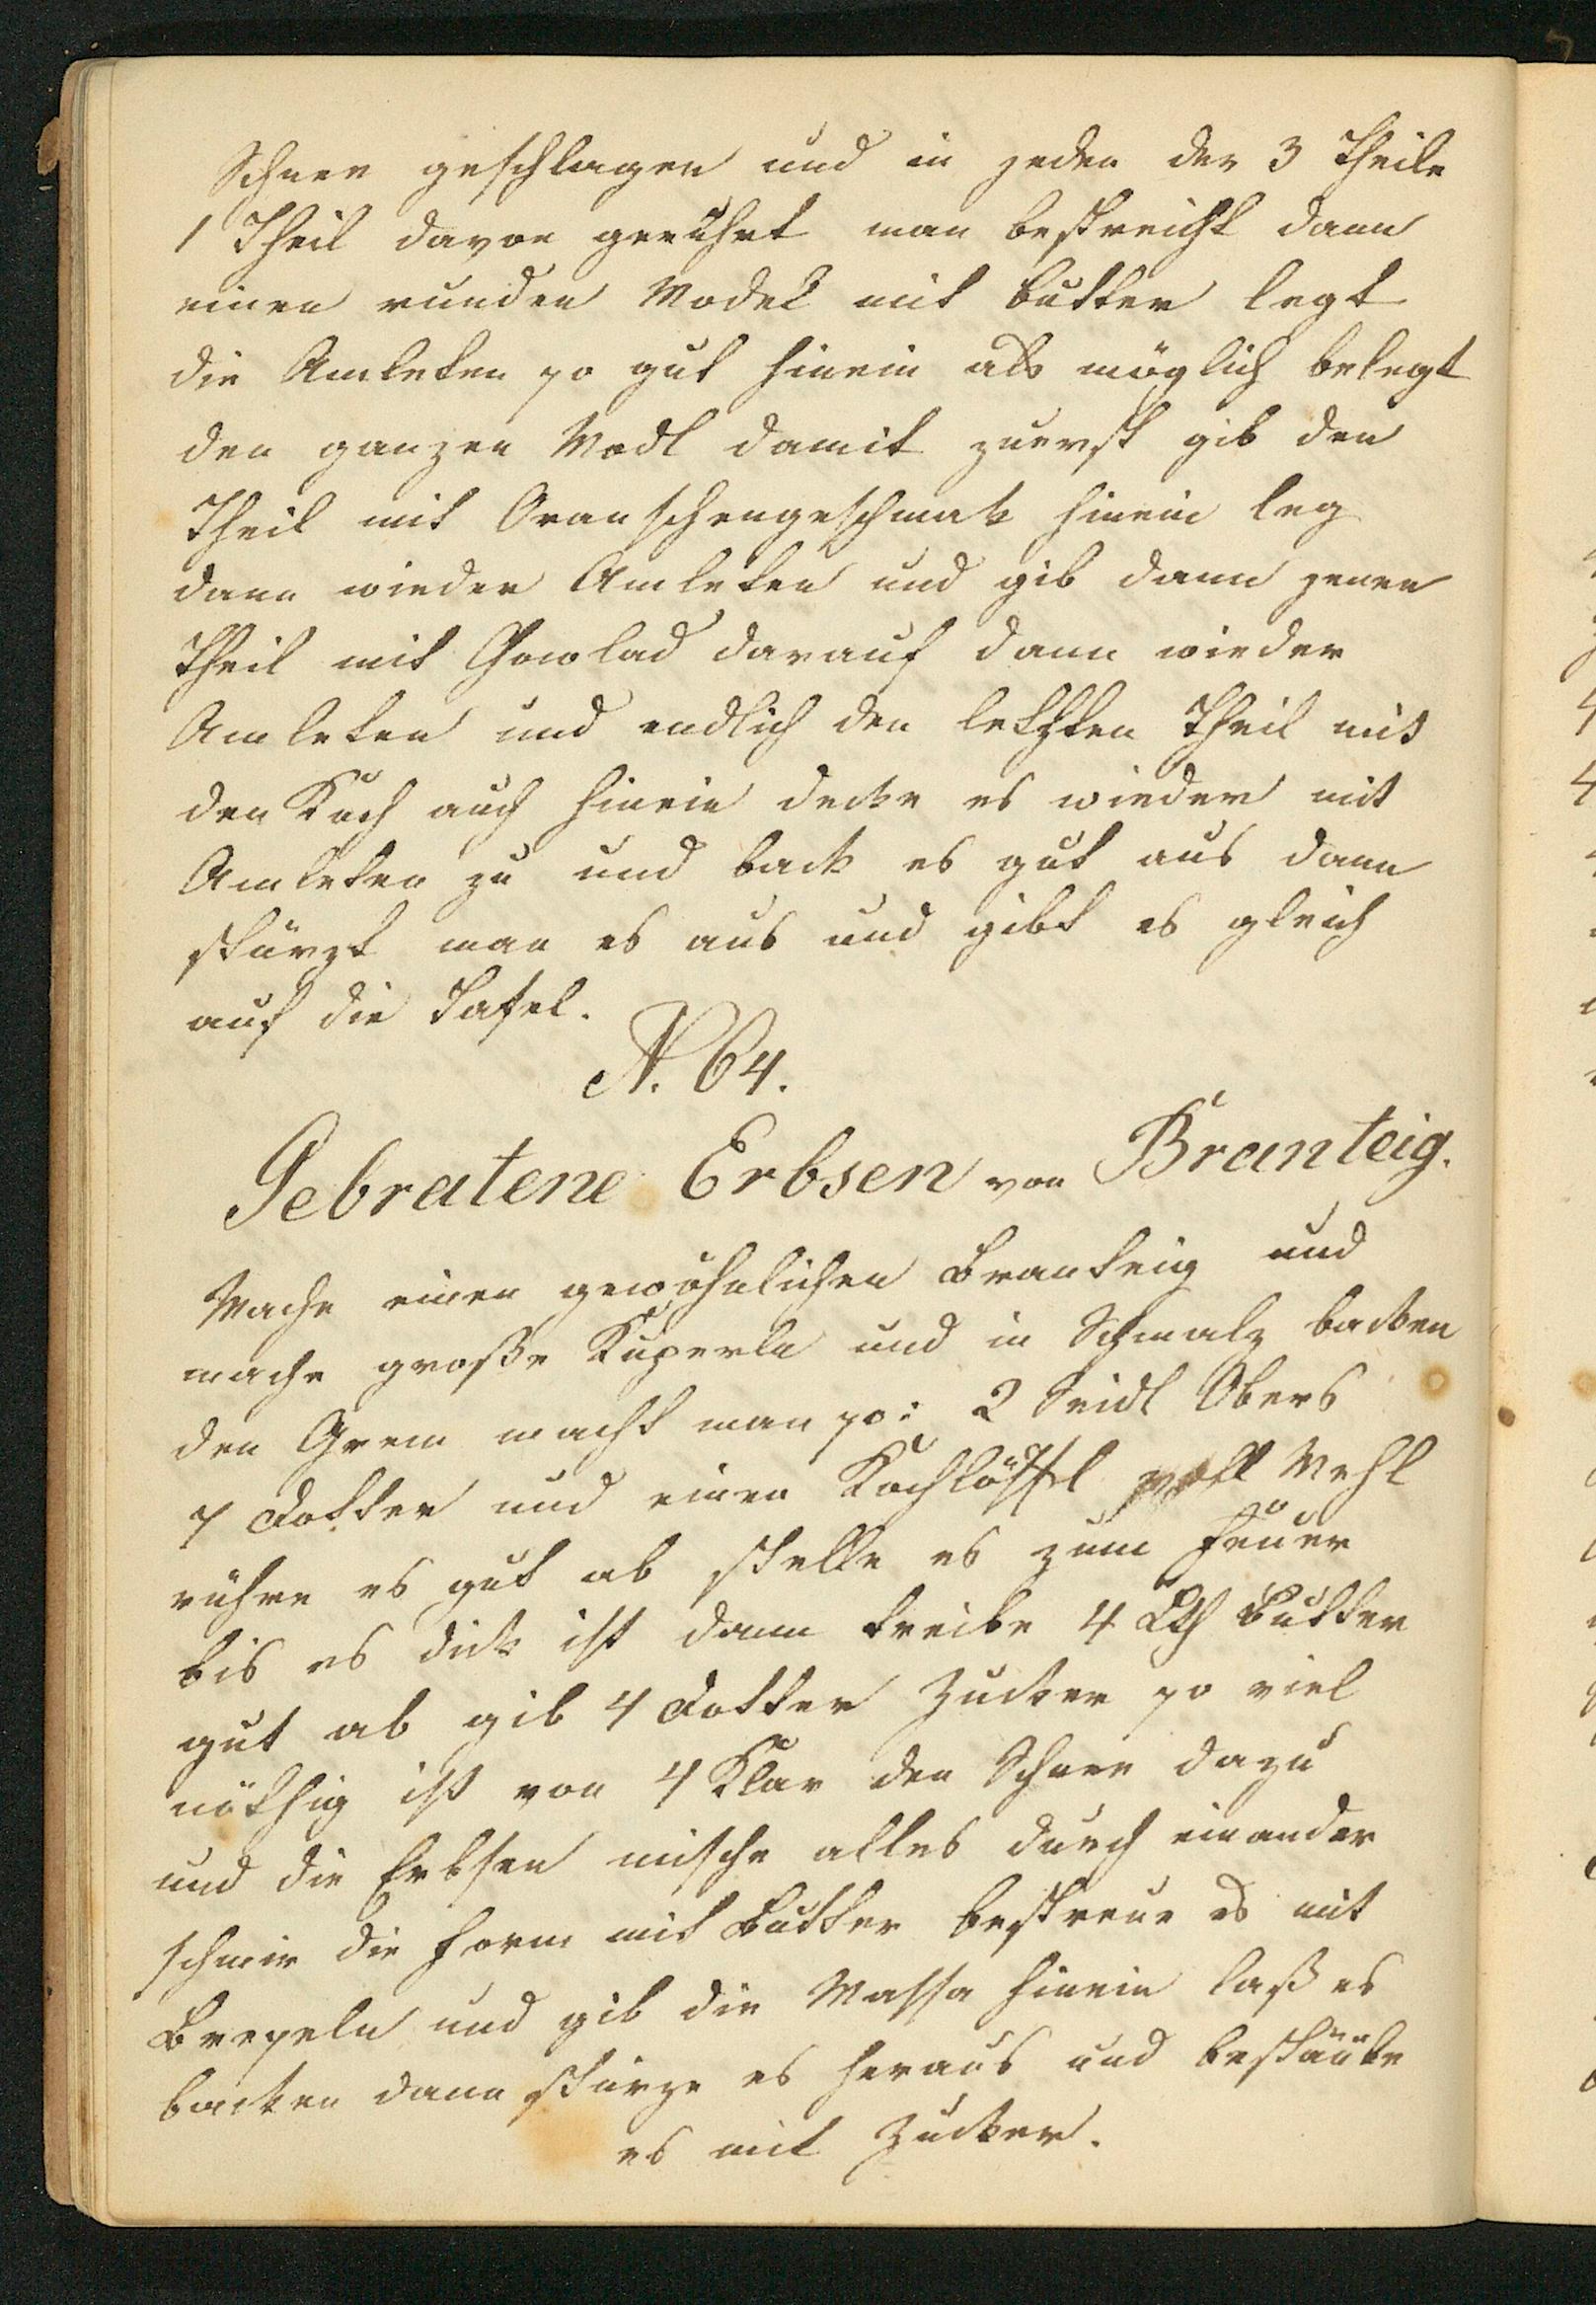 Schnee geschlagen und in jeden der 3 Theile
1 Theil davon gerührt man bestreicht dann
einen runden Model mit Butter legt
die Amleten so gut hinein als möglich belegt
den ganzen Modl damit zuerst gib den
Theil mit Oranschengeschmak hinein leg
dann wieder Amleten und gib dann jenen
Theil mit Schoklad darauf dann wieder
Amleten und endlich den letzten Theil mit
den Koch auch hinein decke es wieder mit
Amleten zu und back es gut aus dann
stürzt man es aus und gibt es gleich
auf die Tafel.
N. 64.
Gebratene Erbsen von Branteig.
Mache einen gewöhnlichen Branteig und
mache große Kugerln und in Schmalz backen
den Grem macht man so: 2 Seidl Obers
7 Dotter und einen Kochlöffel voll Mehl
rühre es gut ab stelle es zum Feuer
bis es dick ist dann treibe 4 Lth Butter
gut ab gib 4 Dotter Zucker so viel
nöthig ist von 4 Klar den Schnee dazu
und die Erbsen mische alles durch einander
schmir die Form mit Butter bestreue es mit
Breseln und gib die Massa hinein laß es
backen dann stürze es heraus und bestäube
es mit Zucker.